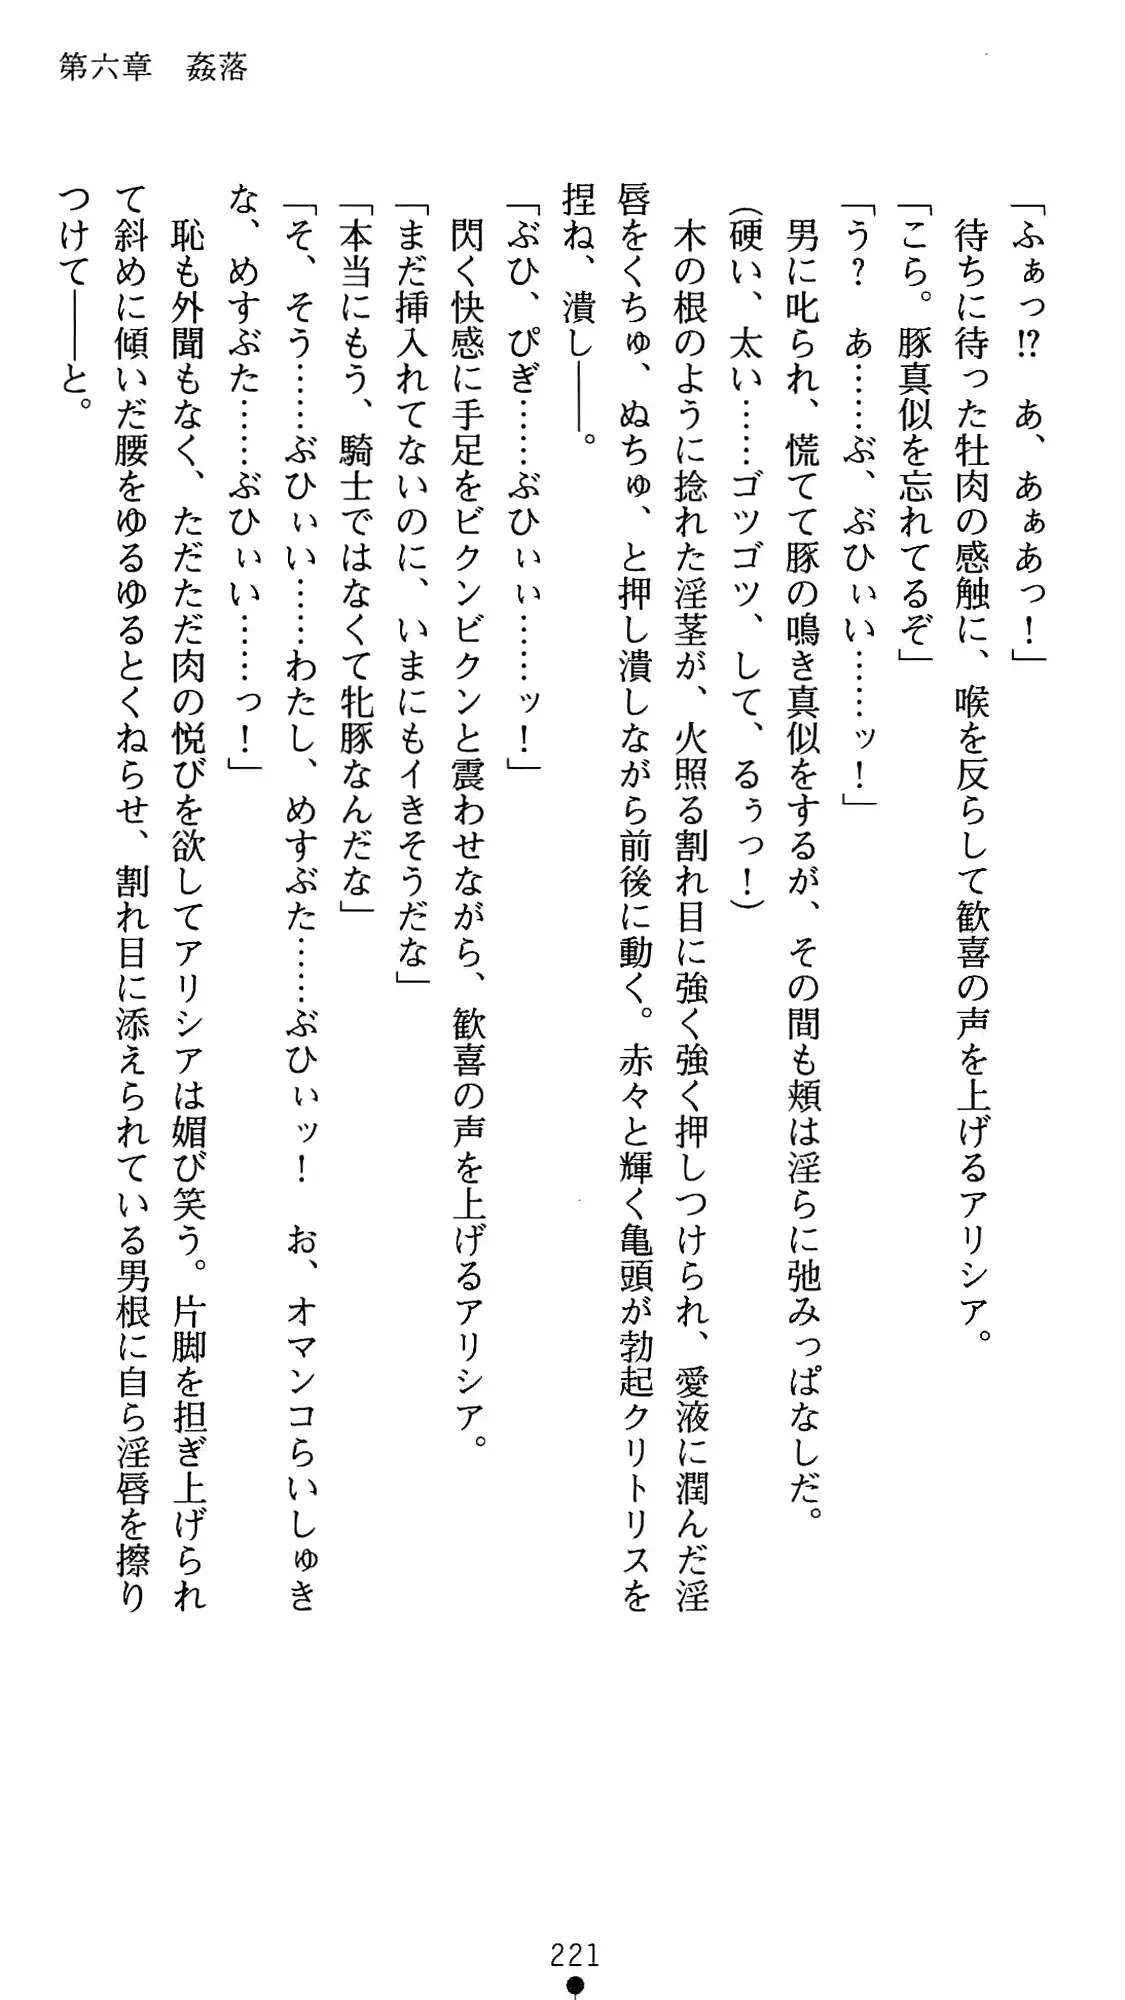 第六章　姦落
「ふぁっ!?　あ、あぁあっ！」
　待ちに待った牡肉の感触に、喉を反らして歓喜の声を上げるアリシア。
「こら。豚真似を忘れてるぞ」
「う？　あ……ぶ、ぶひぃい……ッ！」
　男に叱られ、慌てて豚の鳴き真似をするが、その間も頬は淫らに弛みっぱなしだ。
（硬い、太い……ゴツゴツ、して、るぅっ！）
　木の根のように捻れた淫茎が、火照る割れ目に強く強く押しつけられ、愛液に潤んだ淫
唇をくちゅ、ぬちゅ、と押し潰しながら前後に動く。赤々と輝く亀頭が勃起クリトリスを
捏ね、潰し――。
「ぶひ、ぴぎ……ぶひぃぃ……ッ！」
　閃く快感に手足をビクンビクンと震わせながら、歓喜の声を上げるアリシア。
「まだ挿入れてないのに、いまにもイきそうだな」
「本当にもう、騎士ではなくて牝豚なんだな」
「そ、そう……ぶひぃい……わたし、めすぶた……ぶひぃッ！　お、オマンコらいしゅき
な、めすぶた……ぶひぃい……っ！」
　恥も外聞もなく、ただただ肉の悦びを欲してアリシアは媚び笑う。片脚を担ぎ上げられ
て斜めに傾いだ腰をゆるゆるとくねらせ、割れ目に添えられている男根に自ら淫唇を擦り
つけて――と。
221